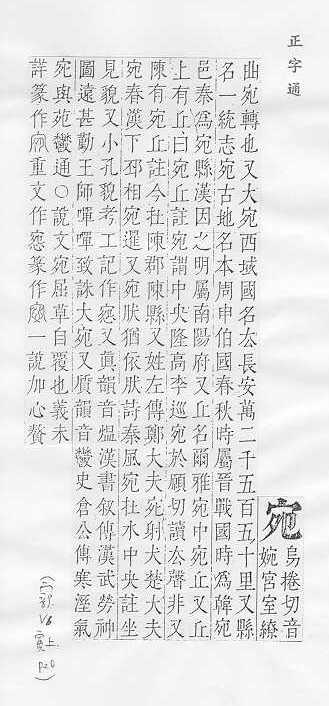 正字通
宛
烏捲切音
婉宮室繚
曲宛轉也又大宛西域國名去長安萬二千五百五十里又縣
名一統志宛古地名本周申伯國春秋時屬晉戰國時爲韓宛
邑秦爲宛縣漢因之明屬南陽府又丘名爾雅宛中宛丘又丘
上有丘曰宛丘註宛謂中央隆高李巡宛於願切讀去聲非又
陳有宛丘註今在陳郡陳縣又姓左傳鄭大夫宛射犬楚大夫
宛春漢下邳相宛暹又宛肰猶依肰詩秦風宛在水中央註坐
見貌又小孔貌考工記作惌又眞韻音熅漢書敘傳漢武勞神
圖遠甚勤王師嘽嘽致誅大宛又質韻音鬱史倉公傳寒溼氣
宛與菀鬱通○說文宛屈草自覆也義未
詳篆作宛重文作惌篆作惌一說加心贅
V6 寅上 p20